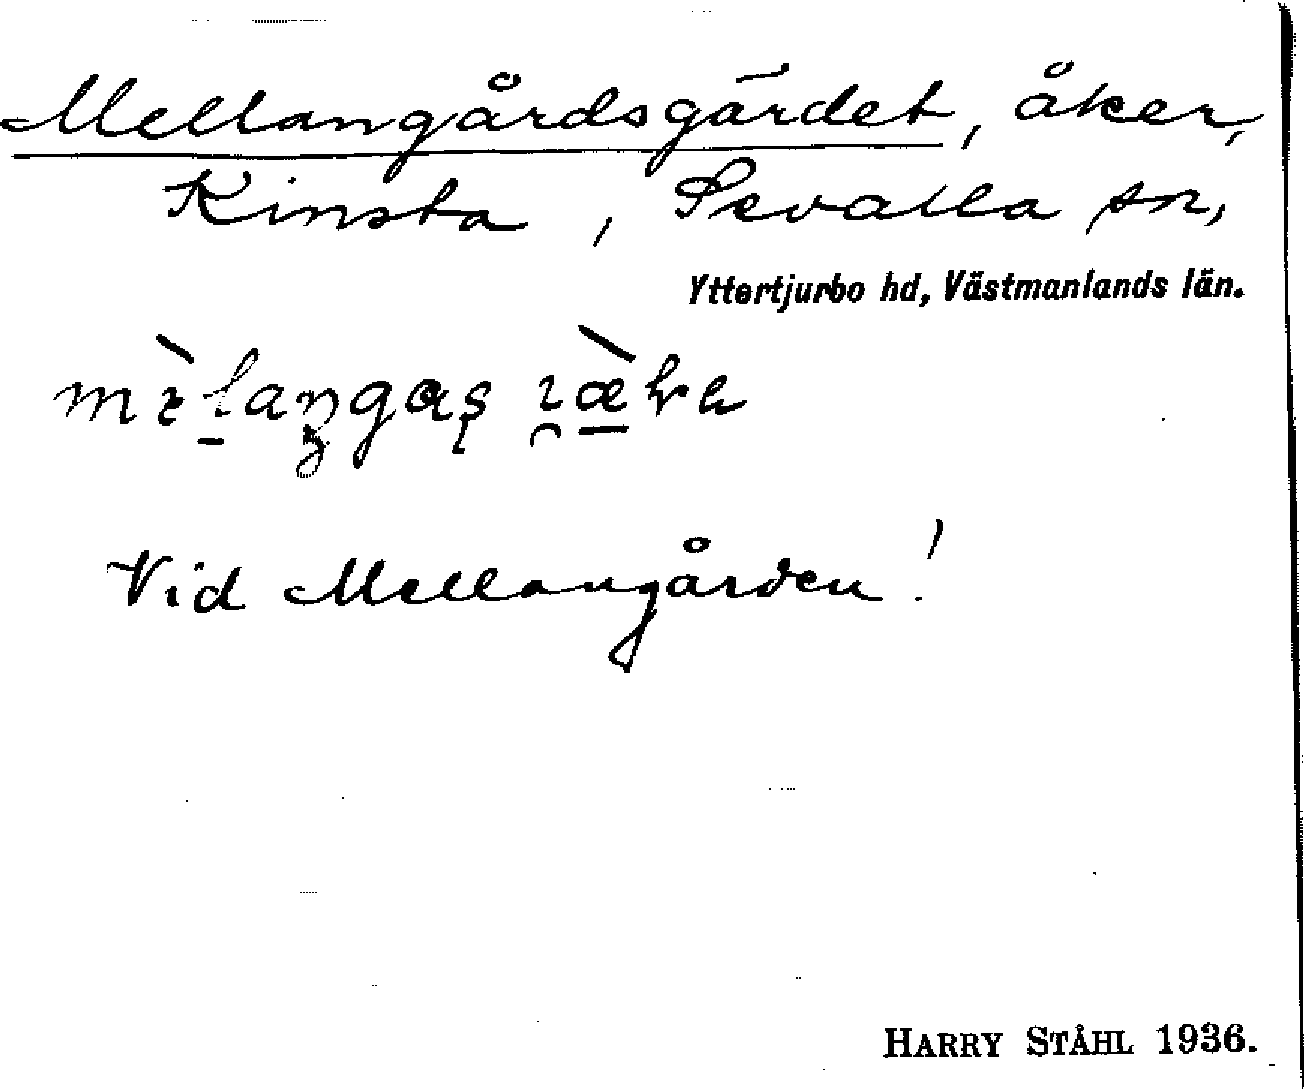 Mellangårdsgärdet, åker,
Kinsta, Sevalla sn,
Yttertjurbo hd, Västmanlands län.
Vid Mellangården!
HARRY STÅHL 1936.